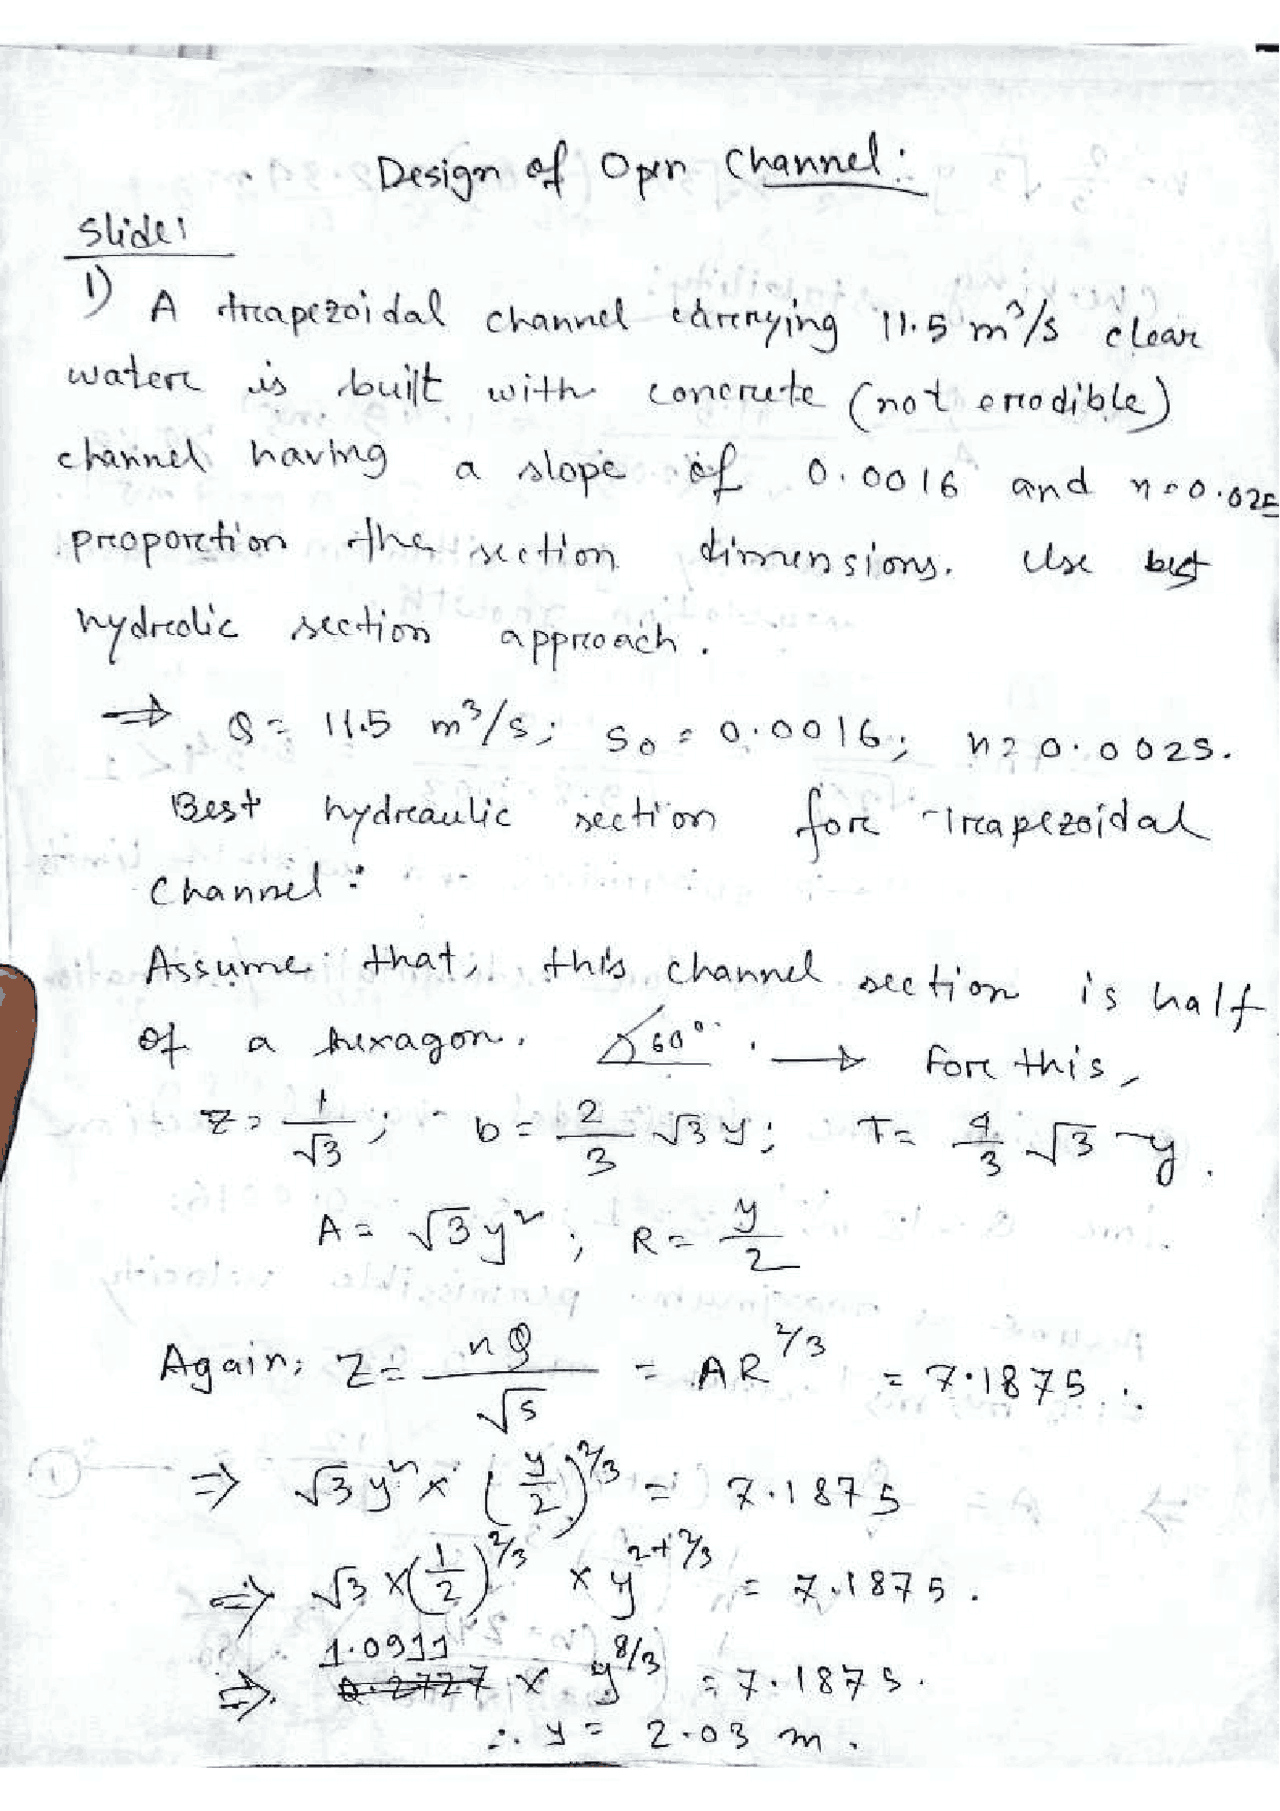 Design of Open Channel:
Slide:
1) A trapezoidal channel carrying 11.5 m³/s clear
water is built with concrete (not errodible)
channel having a slope of 0.0016 and n=0.025
proportion the section dimensions. Use best
hydrolic section approach.
⇒ Q = 11.5 m³/s; S₀ = 0.0016; n = 0.0025.
Best hydraulic section for trapezoidal
Channel:
Assume that, this channel section is half
of a hexagon. 60°. → For this,
z = 1/√3; b = 2/3 √3 y; T = 4/3 √3 y.
A = √3 y²; R = y/2
Again; Z = nQ/√s = AR^2/3 = 7.1875.
⇒ √3 y² × (y/2)^2/3 = 7.1875
⇒ √3 × (1/2)^2/3 × y^2+2/3 = 7.1875.
⇒ 1.0911 × y^8/3 = 7.1875.
∴ y = 2.03 m.